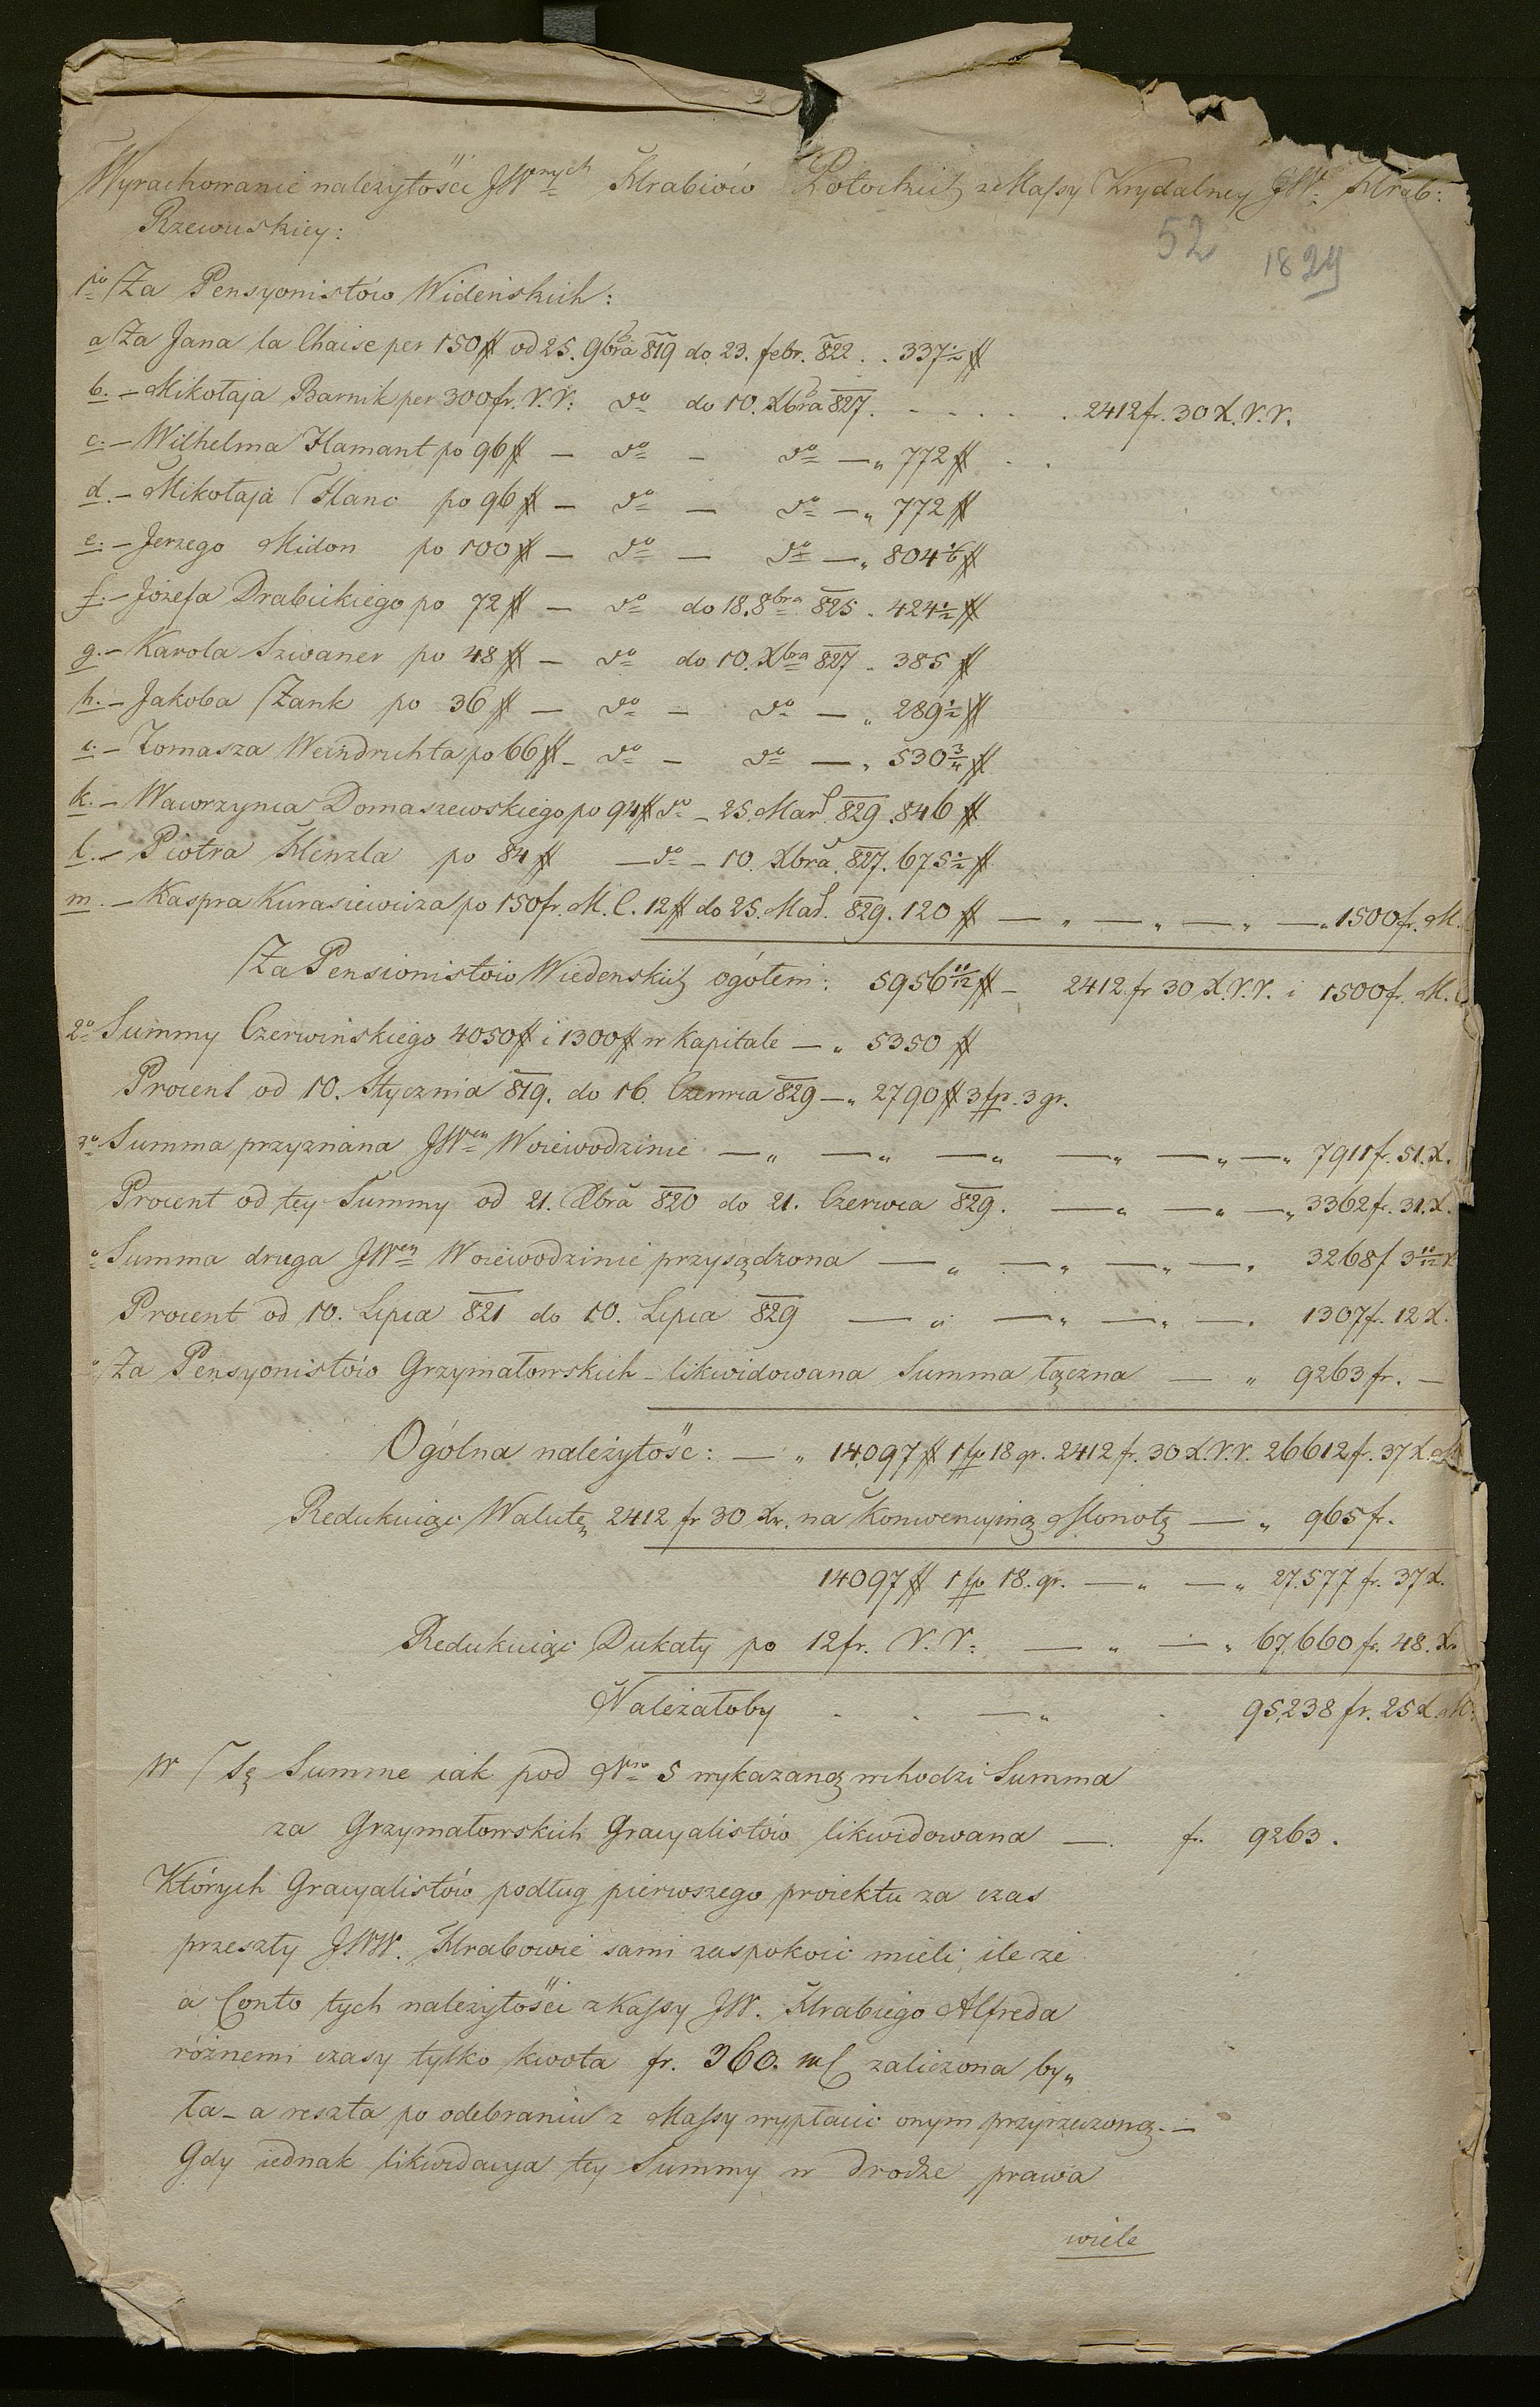 Wyrachowanie należytości JWnych Hrabiów Potockich z Massy Krydalney JW. Hrab:
Rzewuskiey:
52 1829
1mo Za Pensyonistów Wideńskich:
a Za Jana la Chaise per 150 ## od 25. 9bra 819 do 23. febr. 822 . . 337 1/2 ##
b. – Mikołaja Barnik per 300 fr. V.V: do do 10. Xbra 827. . . . . . 2412 fr. 30 X. V.V.
c. – Wilhelma Hamant po 96 ## — do — do —„ 772 ## . .
d. – Mikołaja Hanc po 96 ## — do — do —„ 772 ##
e. – Jerzego Midon po 100 ## — do — do —„ 804 1/6 ##
f. – Józefa Drabickiego po 72 ## — do do 18. 8bra 825 . 424 1/2 ##
g. – Karola Szwaner po 48 ## — do do 10. Xbra 827 . 385 ##
h. – Jakoba Zank po 36 ## — do — do —„ 289 1/2 ##
i. – Tomasza Weindrichta po 66 ## – do — do —„ 530 3/4 ##
k. – Wawrzynca Domaszewskiego po 94 ## do – 25. Mart. 829 . 846 ##
l. – Piotra Henzla po 84 ## — do – 10. Xbra. 827. 675 1/2 ##
m. – Kaspra Kurasiewicza po 150 fr. M.C. 12 ## do 25. Mart. 829. 120 ## — „ — „ — „ —„ 1500 fr. M.
Za Pensionistów Wiedenskich ogółem: 5956 11/12 ## — 2412 fr 30 X. V.V. i 1500 fr. M.C
2o Summy Czerwińskiego 4050 ## i 1300 ## w Kapitale — „ 5350 ##
Procent od 10. Stycznia 819. do 16. Czerwca 829 —„ 2790 ## 3 fp. 3 gr.
3o Summa przyznana JWey Woiewodzinie —„ —„ —„ —„ —„ —„ 7911 f. 51. X.
Procent od tey Summy od 21. 8bra 820 do 21. Czerwca 829. —„ —„ —„ 3362 fr. 31. X.
o Summa druga JWey Woiewodzinie przysądzona —„ —„ —„ —. 3268 f 3 10/12 X
Procent od 10. Lipca 821 do 10. Lipca 829 —„ —„ —„ —. 1307 fr. 12 X.
o Za Pensyonistów Grzymałowskich – likwidowana Summa łączna — „ 9263 fr. —
Ogólna należytość: — „ 14,097 ## 1 fp 18 gr. 2412 fr. 30 X. V.V. 26612 fr. 37 X. M
Redukuiąc Walutę 2412 fr 30 Xr. na Konwencyiną Monetę — „ 965 fr.
14097 ## 1 fp 18. gr. —„ —„ 27.577 fr. 37 X.
Redukuiąc Dukaty po 12 fr. V.V: — „ — „ 67,660 fr. 48. X.
Należałoby . . —„ . 95,238 fr. 25 X. M:
W Tę Summe iak pod Nro 5 wykazaną wchodzi Summa
za Grzymałowskich Gracyalistów likwidowana —. fr. 9263.
Których Gracyalistów podług pierwszego proiektu za czas
przeszły JWW. Hrabowie sami zaspokoić mieli, ile że
a Conto tych należytości z Kassy JW. Hrabiego Alfreda
róznemi czasy tylko kwota fr. 360. MC zaliczona by„
ła – a reszta po odebraniu z Massy wypłacić onym przyrzeczoną. —
Gdy iednak likwidacya tey Summy w drodze prawa
wiele